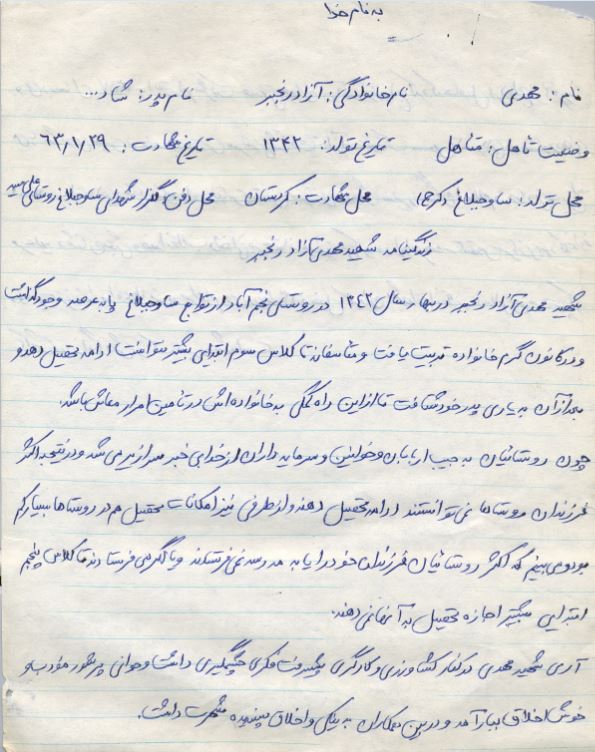 به نام خدا
نام: مهدی نام خانوادگی: آزاد رنجبر نام پدر: شاد...
وضعیت تاهل: متاهل تاریخ تولد: ۱۳۴۲ تاریخ شهادت: ۶۳/۱/۲۹
محل تولد: ساوجبلاغ (کرج) محل شهادت: کردستان محل دفن: گلزار شهدای ساوجبلاغ روستای
زندگینامه شهید مهدی آزاد رنجبر
شهید مهدی آزاد رنجبر در بهار سال ۱۳۴۲ در روستای نجم آباد از توابع ساوجبلاغ پا به عرصه وجود گذاشت
و در کانون گرم خانواده تربیت یافت و متاسفانه تا کلاس سوم ابتدایی بیشتر نتوانست ادامه تحصیل دهد و
بعد از آن به یاری پدر خود شتافت تا از این راه کمکی به خانواده اش در تامین امرار معاش باشد.
چون روستائیان به جیب اربابان و خوانین و سرمایه داران از خدا بی خبر سرازیر می شد و در نتیجه اکثر
فرزندان روستاها نمی توانستند ادامه تحصیل دهند و از طرفی نیز امکانات تحصیل هم در روستاها بسیار کم
بود و می بینم که اکثر روستائیان فرزندان خود را یا به مدرسه نمی فرستادند و یا اگر می فرستادند تا کلاس پنجم
ابتدایی بیشتر اجازه تحصیل به آنها نمی دهند.
آری شهید مهدی در کنار کشاورزی و کارگری پیشرفت فکری چشمگیری داشت و جوانی پر شور مؤدب و
خوش اخلاق ببار آمد و در بین همکاران به نیکی و اخلاق پسندیده شهرت داشت.